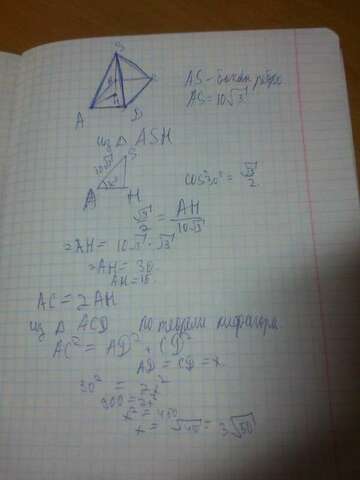 S
B
C
H
A
D
AS - бокан ребро
AS = 10√3
из Δ ASH
10√3
S
30°
A
H
cos 30° = √3/2
√3/2 = AH/10√3
2AH = 10√3 · √3
2AH = 30
AH = 15
AC = 2AH
из Δ ACD по теореме пифагора
AC² = AD² + CD²
AD = CD = x
30² = 2x²
900 = 2x²
x² = 450
x = √450 = 3√50